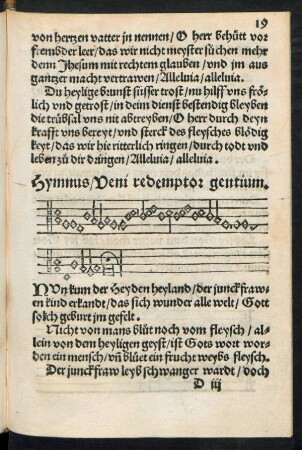 19
von hertzen vatter jn nennen/ O herr behütt vor
frembder leer/ das wir nicht meyster süchen mehr
denn Jhesum mit rechtem glauben/ vnd jm aus
gantzer macht vertrawen/ Alleluia/ alleluia.
Du heylige brunst süsser trost/ nu hilff vns frö⸗
lich vnd getrost/ in deim dienst bestendig bleyben
die trübsal vns nit abtreyben/ O herr durch deyn
krafft vns bereyt/ vnd sterck des fleysches blödig
keyt/ das wir hie ritterlich ringen/ durch todt vnd
leben zů dir dringen/ Alleluia/ alleluia.
Hymnus/ Veni redemptor gentium.
NVn kum der Heyden heyland/ der junckfraw⸗
en kind erkandt/ das sich wunder alle welt/ Gott
solch geburt jm gestelt.
Nicht von mans blüt noch vom fleysch/ al⸗
lein von dem heyligen geyst/ ist Gots wort wor⸗
den ein mensch/ vñ blüet ein frucht weybs fleysch.
Der junckfraw leyb schwanger wardt/ doch
D iij